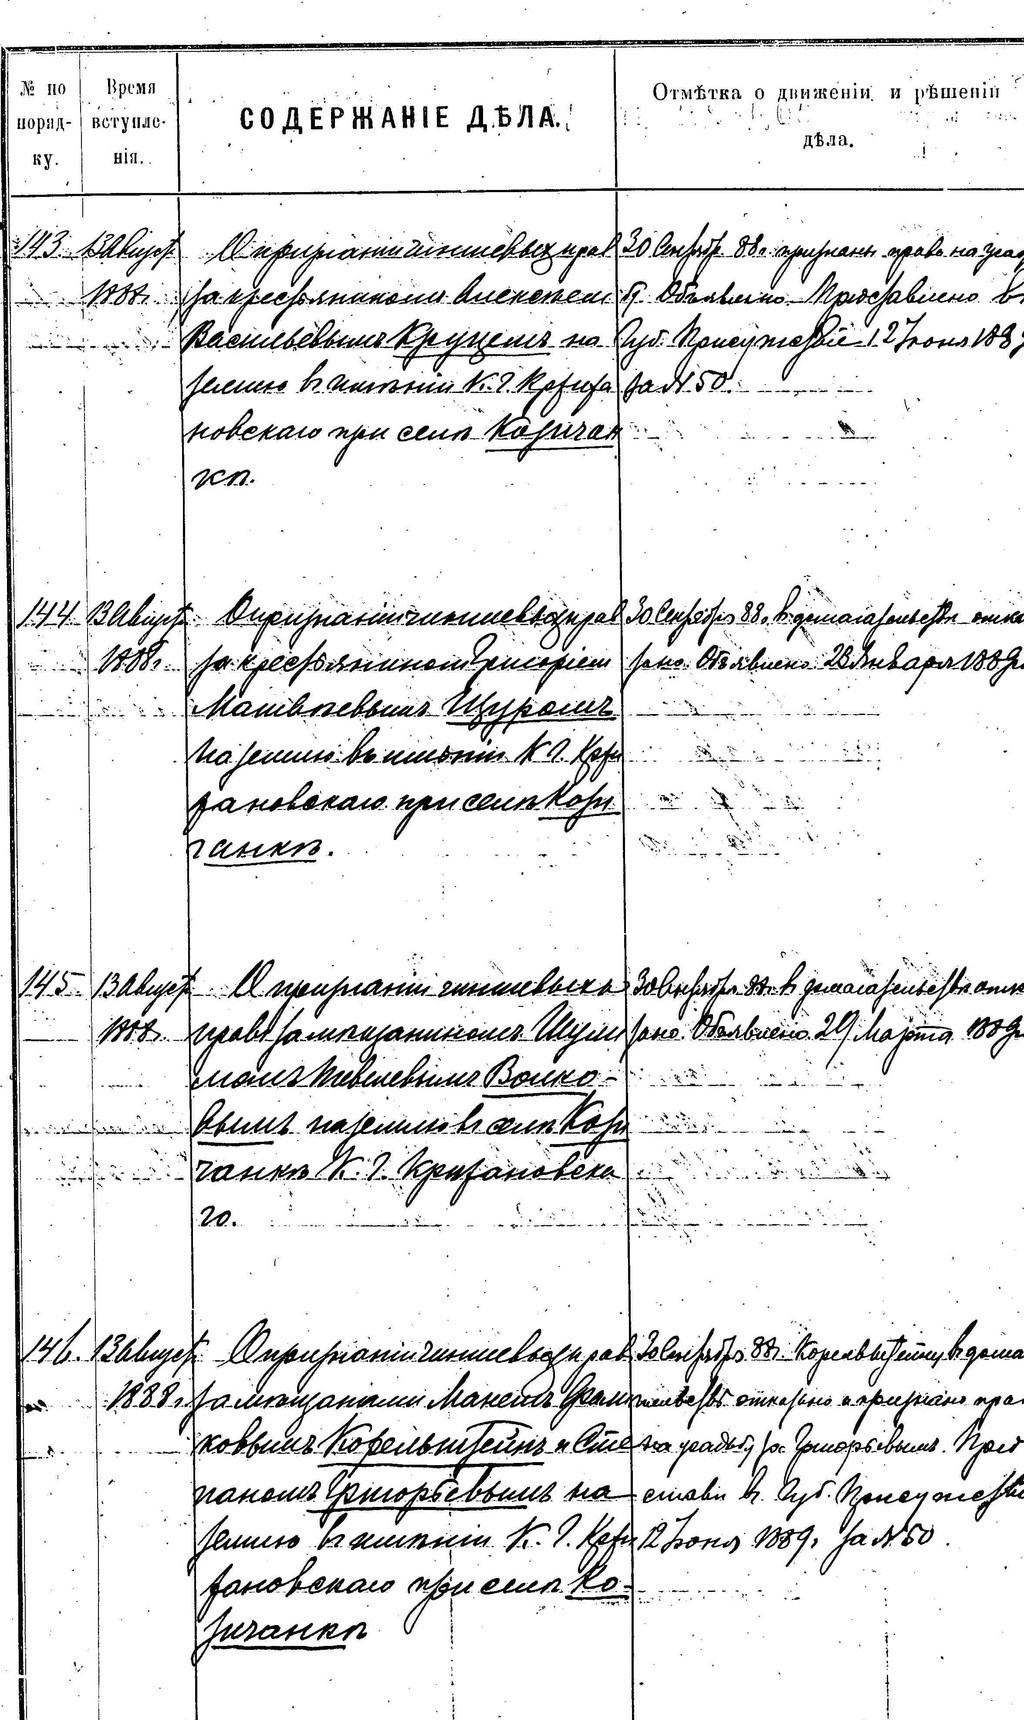 № по поряд- ку.
Время вступле- нія.
СОДЕРЖАНІЕ ДѢЛА.
Отмѣтка о движеніи и рѣшеніи
дѣла.
143. 13 Август.
1888г.
О признаніи чиншевыхъ прав
за крестьяниномъ Алексѣем
Васильевымъ Круцемъ на
землю въ имѣніи К. Г. Кржижа
новскаго при селѣ Козичан
кѣ.
30 Сентябр. 88г. признаны права на усад
Объявлено. Представлено въ
Губ. Присутствіе 12 Іюня 188
за № 50.
144. 13 Август.
1888г.
О признаніи чиншевыхъ прав
за крестьяниномъ Григоріем
Матвѣевымъ Щуромъ
на землю въ имѣніи К. Г. Крж
зановскаго при селѣ Кози
чанкѣ.
30 Сентябр. 88г. въ домагательствѣ отка
зано. Объявлено 23 Января 1889г.
145. 13 Август.
1888г.
О признаніи чиншевыхъ
правъ за мѣщаниномъ Шуль
момъ Волко-
вымъ на землю въ селѣ Кози
чанкѣ К. Г. Кризановска
го.
30 Сентябр. 88г. въ домагательствѣ отка
зано. Объявлено 29 Марта 1889г.
146. 13 Август.
1888г.
О признаніи чиншевыхъ прав
за мѣщанами
ковымъ Корельштейнъ и Сте
паномъ Григорьевымъ на
землю въ имѣніи К. Г. Кри
зановскаго при селѣ Ко-
зичанкѣ
30 Сентябр. 88г. Корельштейну въ дома
гательствѣ отказано и признано пра
на усадьбу за Григорьевымъ. Пред
ставл. въ Губ. Присутствіе
12 Іюня 1889г. за № 50.